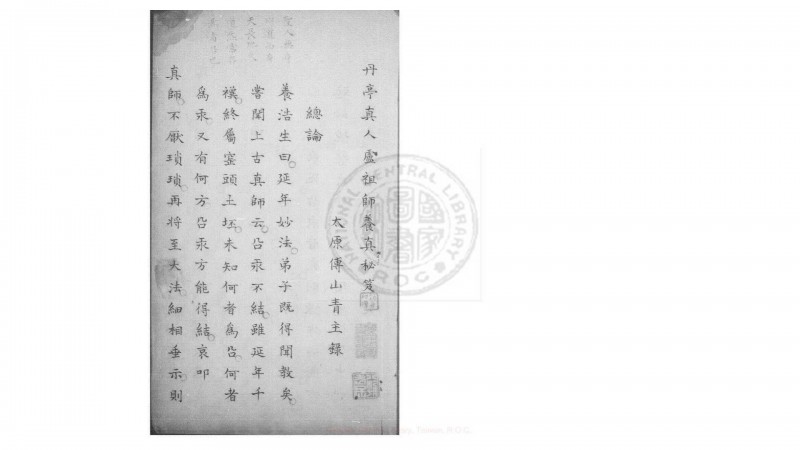 丹亭真人盧祖師養真秘笈
太原傅山青主錄
總論
養浩生曰延年妙法弟子既得聞教矣
嘗聞上古真師云㕣汞不結雖延年千
襈終屬窑頭土坯未知何者為㕣何者
為汞又有何方㕣汞方能得結哀叩
真師不厭瑣瑣再將至大法細相垂示則
NATIONAL CENTRAL LIBRARY
R.O.C.
國家圖書館